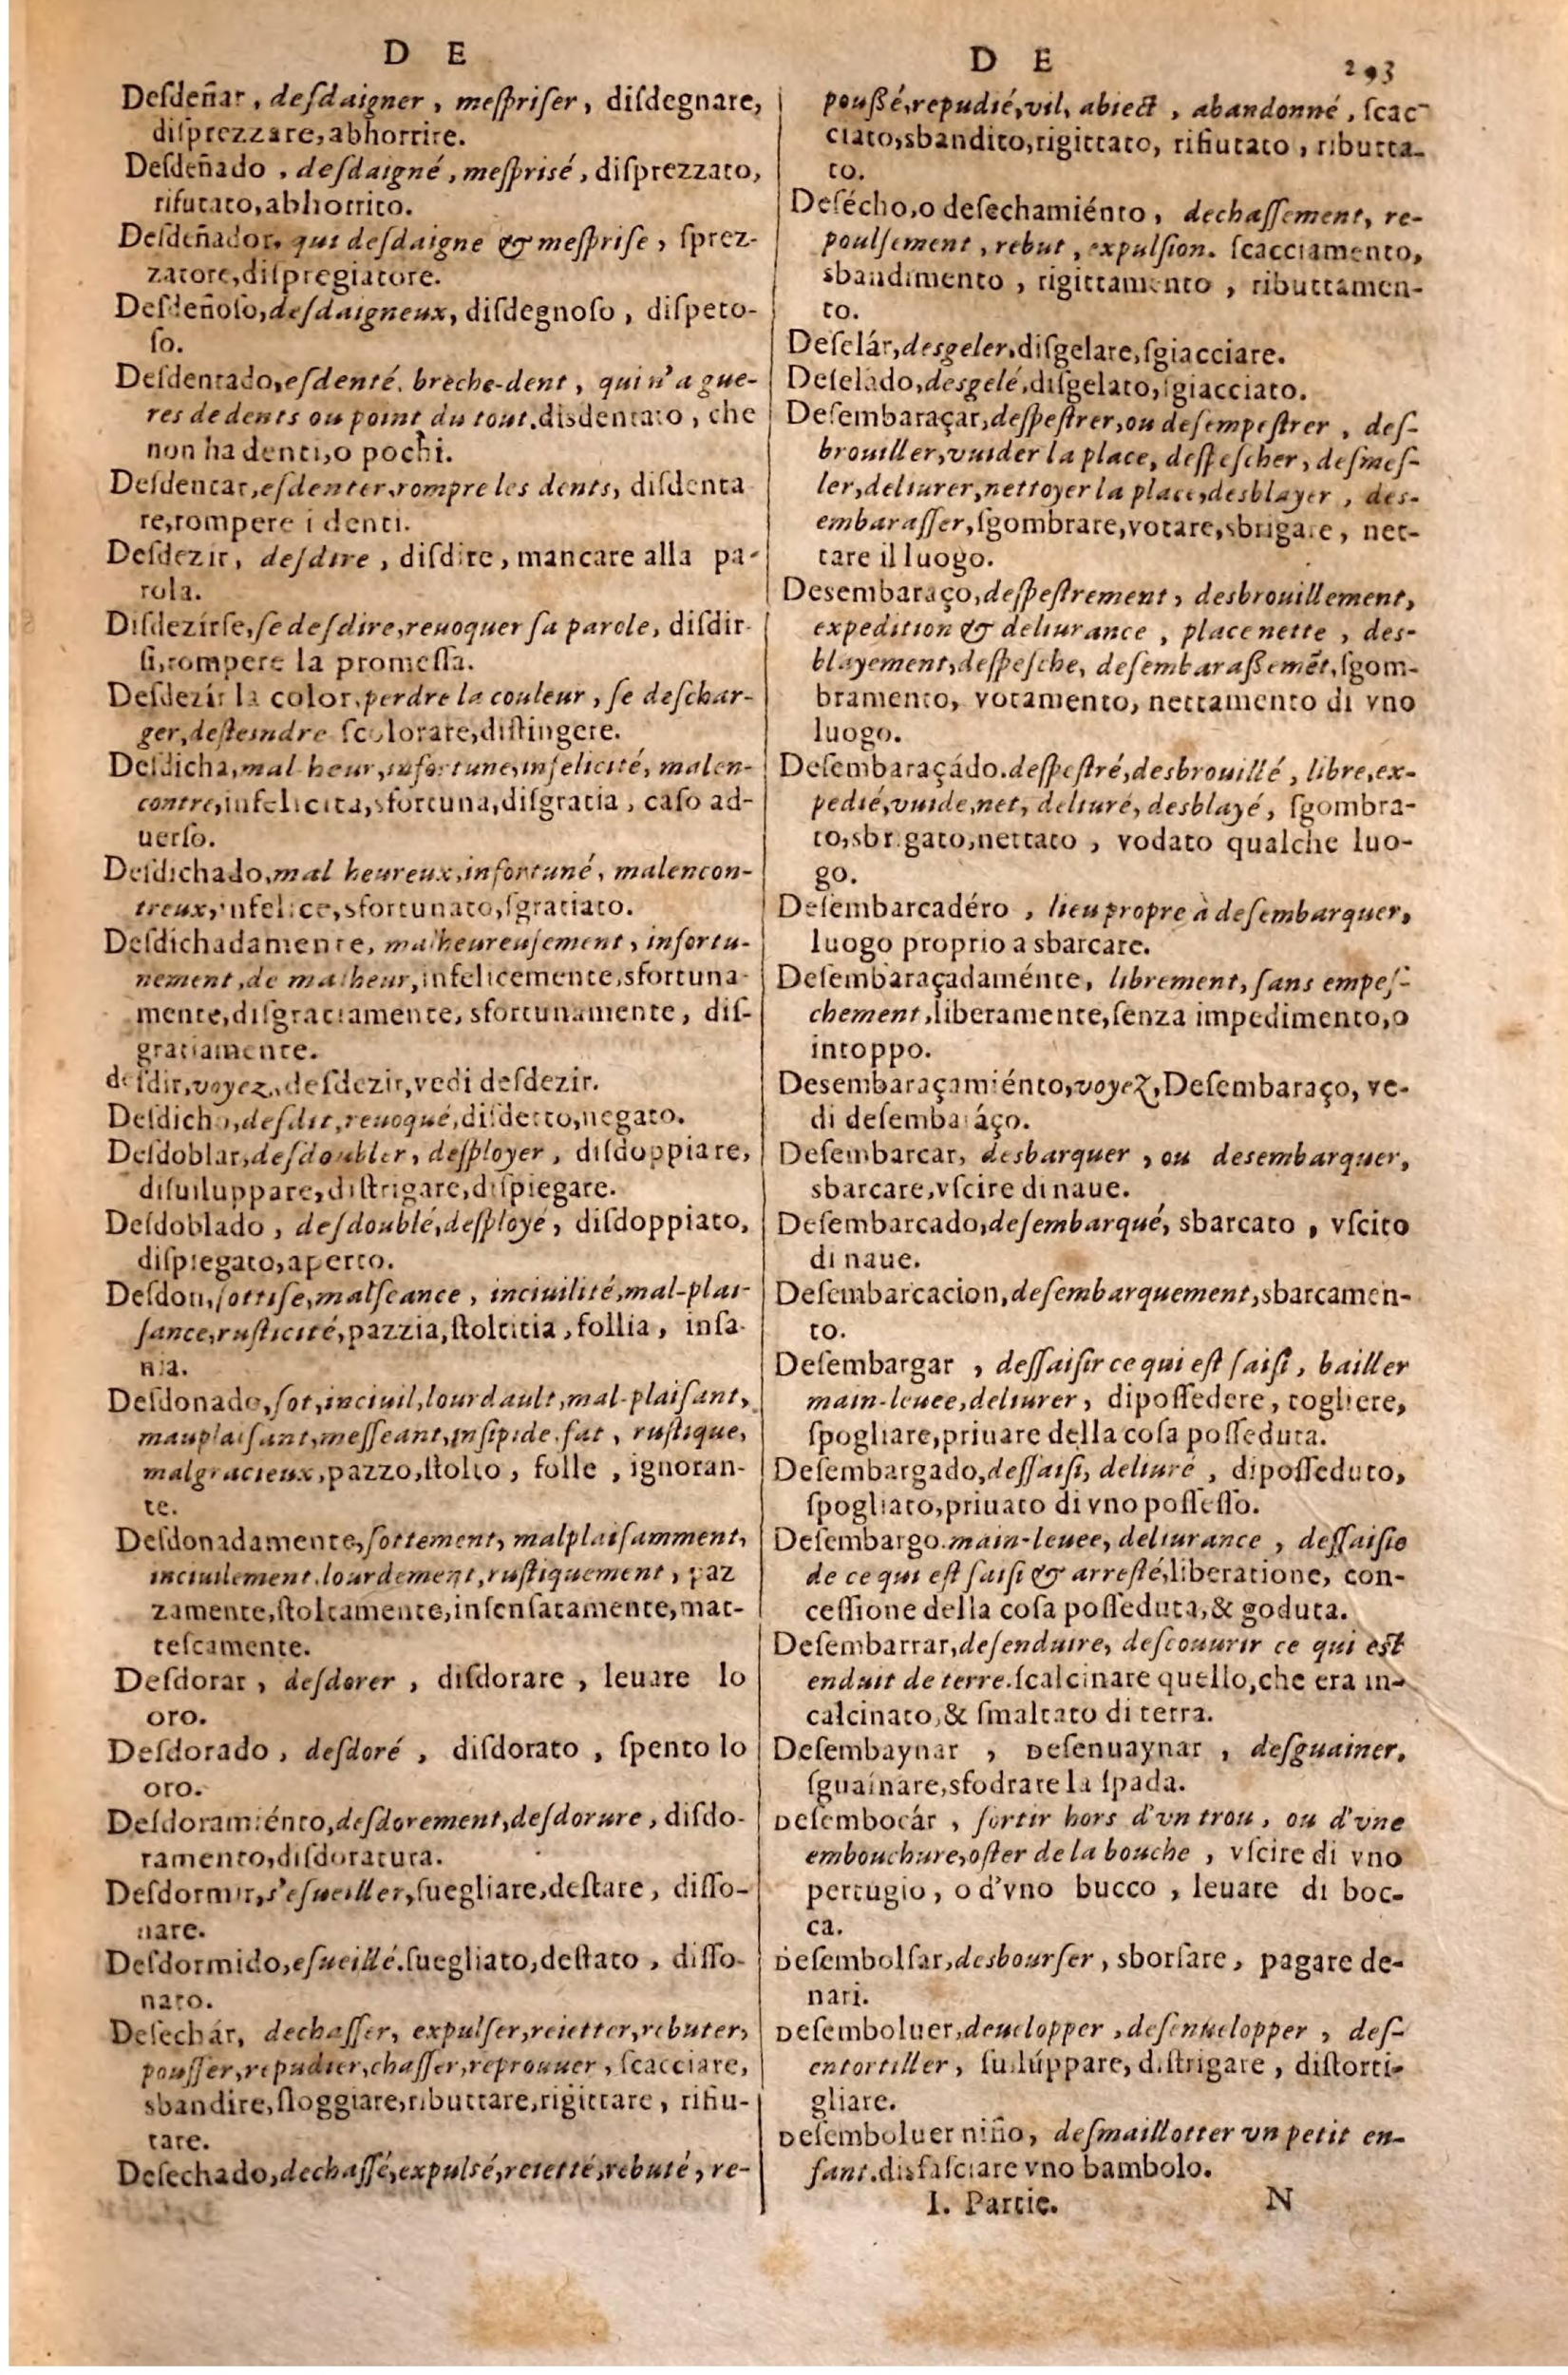 D E
Deſdeñar, deſdaigner, meſpriſer, diſdegnare,
diſprezzare,abhorrire.
Deſdeñado, deſdaigné, meſprisé, diſprezzato,
rifutato,abhorrito.
Deſdeñador, qui deſdaigne & meſpriſe, ſprez-
zatore,diſpregiatore.
Deſdeñoſo,deſdaigneux, diſdegnoſo, diſpeto-
ſo.
Deſdentado,eſdenté, breche-dent, qui n'a gue-
res de dents ou point du tout.disdentato, che
non ha denti,o pochi.
Deſdentar,eſdenter,rompre les dents, diſdenta
re,rompere i denti.
Deſdezir, deſdire, diſdire, mancare alla pa-
rola.
Diſdezirſe,ſe deſdire,reuoquer ſa parole, diſdir-
ſi,rompere la promeſſa.
Deſdezir la color,perdre la couleur, ſe deſchar-
ger,desteindre ſcolorare,diſtingere.
Deſdicha,mal heur,infortune,infelicité, malen-
contre,infelicita,sfortuna,diſgratia, caſo ad-
uerſo.
Deſdichado,mal heureux,infortuné, malencon-
treux,infelice,sfortunato,ſgratiato.
Deſdichadamente, malheureuſement, infortu-
nement,de malheur,infelicemente,sfortuna-
mente,diſgratiamente, sfortunamente, diſ-
gratiamente.
deſdir,voyez,deſdezir,vedi deſdezir.
Deſdicho,deſdit,reuoqué,diſdetto,negato.
Deſdoblar,deſdoubler, deſployer, diſdoppiare,
diſuiluppare,diſtrigare,diſpiegare.
Deſdoblado, deſdoublé,deſployé, diſdoppiato,
diſpiegato,aperto.
Deſdon,ſottiſe,malſeance, inciuilité,mal-plai-
ſance,ruſticité,pazzia,ſtoltitia,follia, inſa-
nia.
Deſdonado,ſot,inciuil,lourdault,mal-plaiſant,
mauplaiſant,meſſeant,inſipide,fat, ruſtique,
malgracieux,pazzo,ſtolto, folle, ignoran-
te.
Deſdonadamente,ſottement, malplaiſamment,
inciuilement,lourdement,ruſtiquement, paz
zamente,ſtoltamente,inſenſatamente,mat-
teſcamente.
Deſdorar, deſdorer, diſdorare, leuare lo
oro.
Deſdorado, deſdoré, diſdorato, ſpento lo
oro.
Deſdoramiénto,deſdorement,deſdorure, diſdo-
ramento,diſdoratura.
Deſdormir,s'eſueiller,ſuegliare,deſtare, diſſo-
nare.
Deſdormido,eſueillé.ſuegliato,deſtato, diſſo-
nato.
Deſechár, dechaſſer, expulſer,reietter,rebuter,
pouſſer,repudier,chaſſer,reprouuer, ſcacciare,
sbandire,ſloggiare,ributtare,rigittare, rifiu-
tare.
Deſechado,dechaſſé,expulsé,reietté,rebuté, re-
D E 293
poußé,repudié,vil, abiect, abandonné, ſcac-
ciato,sbandito,rigittato, rifiutato, ributta-
to.
Deſécho,o deſechamiénto, dechaſſement, re-
poulſement, rebut, expulſion. ſcacciamento,
sbandimento, rigittamento, ributtamen-
to.
Deſelár,desgeler,diſgelare,ſgiacciare.
Deſelado,desgelé,diſgelato,ſgiacciato.
Deſembaraçar,deſpeſtrer,ou deſempeſtrer, deſ-
brouiller,vuider la place, deſpeſcher, deſmeſ-
ler,deliurer,nettoyer la place,desblayer, des-
embaraſſer,ſgombrare,votare,sbrigare, net-
tare il luogo.
Desembaraço,deſpeſtrement, desbrouillement,
expedition & deliurance, place nette, des-
blayement,deſpeſche, deſembaraßemẽt,ſgom-
bramento, votamento, nettamento di vno
luogo.
Deſembaraçádo.deſpeſtré,desbrouillé, libre,ex-
pedié,vuide,net, deliuré, desblayé, ſgombra-
to,sbrigato,nettato, vodato qualche luo-
go.
Deſembarcadéro, lieu propre à deſembarquer,
luogo proprio a sbarcare.
Deſembaraçadaménte, librement, ſans empeſ-
chement,liberamente,ſenza impedimento,o
intoppo.
Desembaraçamiénto,voyez,Deſembaraço, ve-
di deſembaráço.
Deſembarcar, desbarquer, ou desembarquer,
sbarcare,vſcire di naue.
Deſembarcado,deſembarqué, sbarcato, vſcito
di naue.
Deſembarcacion,deſembarquement,sbarcamen-
to.
Deſembargar, deſſaiſir ce qui eſt ſaiſi, bailler
main-leuee,deliurer, dipoſſedere, togliere,
ſpogliare,priuare della coſa poſſeduta.
Deſembargado,deſſaiſi, deliuré, dipoſſeduto,
ſpogliato,priuato di vno poſſeſſo.
Deſembargo.main-leuee, deliurance, deſſaiſie
de ce qui eſt ſaiſi & arreſté,liberatione, con-
ceſſione della coſa poſſeduta,& goduta.
Deſembarrar,deſenduire, deſcouurir ce qui est
enduit de terre.ſcalcinare quello,che era in-
calcinato,& ſmaltato di terra.
Deſembaynar, Deſenuaynar, deſguainer,
ſguainare,sfodrare la ſpada.
Deſembocár, ſortir hors d'vn trou, ou d'vne
embouchure,oſter de la bouche, vſcire di vno
pertugio, o d'vno bucco, leuare di boc-
ca.
Deſembolſar,desbourſer, sborſare, pagare de-
nari.
Deſemboluer,deuelopper, deſenuelopper, deſ-
entortiller, ſuilúppare, diſtrigare, diſtorti-
gliare.
Deſemboluer niño, deſmaillotter vn petit en-
fant.disfaſciare vno bambolo.
I. Partie. N